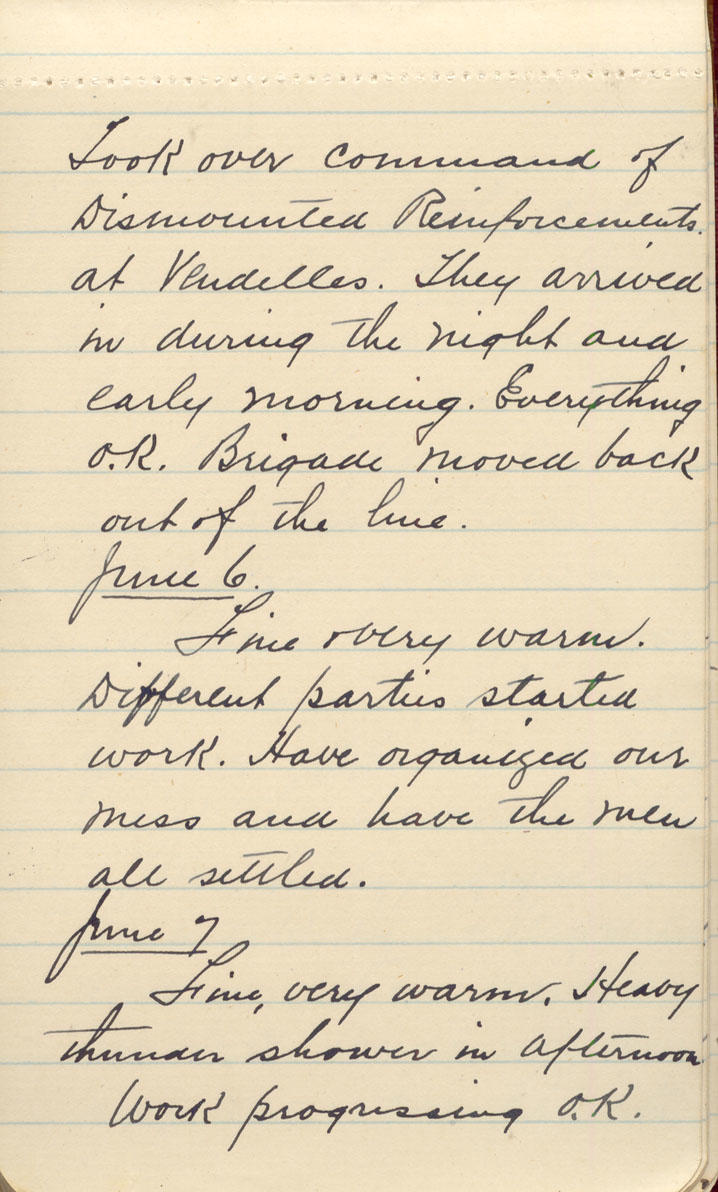 Took over command of
Dismounted Reinforcements.
at Vendelles. They arrived
in during the night and
early morning. Everything
O.K. Brigade moved back
out of the line.
June 6.
Fine & very warm.
Different parties started
work. Have organized our
mess and have the men
all settled.
June 7
Fine, very warm. Heavy
thunder shower in afternoon
Work progressing O.K.